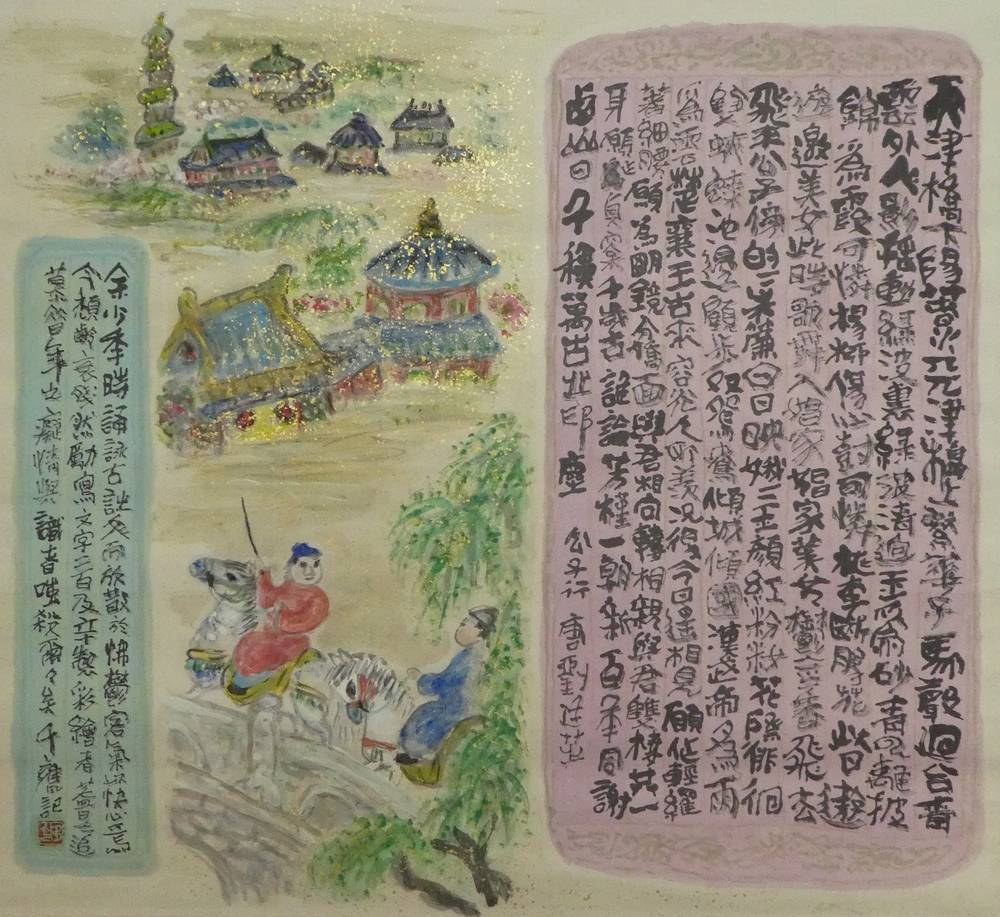 天津橋下陽春水天津橋上繁華子馬聲迴合青
雲外人影搖動綠波裏綠波清迴玉為砂青雲離披
錦為霞可憐楊柳傷心樹可憐桃李斷腸花此日遨
遊邀美女此時歌舞入娼家娼家美女鬱金香飛去
飛來公子傍的々朱簾白日映娥々玉顏紅粉粧花際徘徊
雙蛺蝶池邊顧步双鴛鴦傾城傾國漢武帝為雨
為雲楚襄王古來容光人所羨況得今日遙相見願作輕羅
著細腰願為明鏡分嬌面與君相向轉相親與君雙棲共一
身願為貞案千歲古誰論芳槿一朝新百年同謝
西山日千穐萬古北邙塵 公子行 唐劉廷芝
余少季時誦詠古詩文而欲散於怫鬱客氣以快心焉
今頽齡衰殘然勵寫文字二百及立製彩繪者蓋追
慕於昔年之癡情與識者嗤殺爾々矣千記